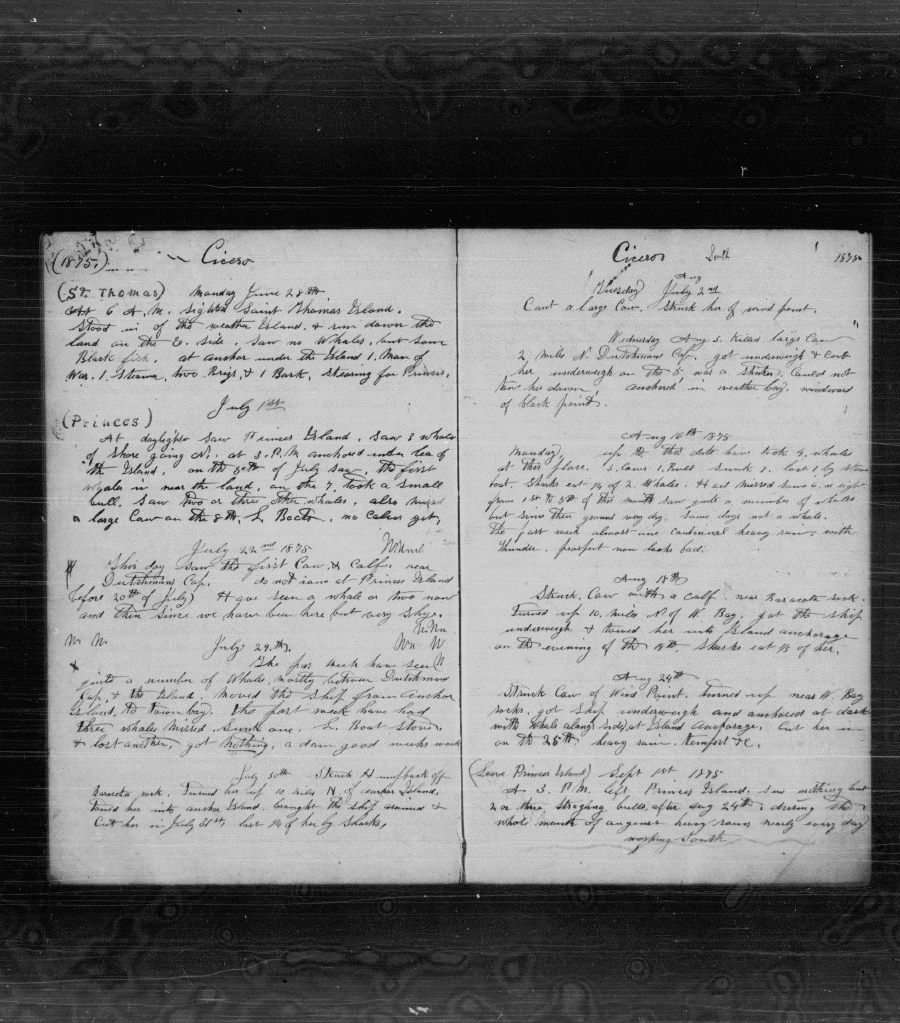 (1875.) Cicero
(St. Thomas) Monday June 28th
At 6 A.M. Sighted Saint Thomas Island.
Stood in of the weather Island, & run down the
land on the E. side, saw no Whales, but some
Black fish. at anchor under the Island 1. Man of
War. 1. Steamer, two Brigs, & 1 Bark, stearing for Princes.
July 1st
(Princes)
At daylight saw Princes Island. Saw 3 whales
of shore going N. at 3. P.M. anchored under lea of
the Island. on the 5th of July saw the first
whales in near the land, on the 7. took a small
bull. Saw two or three other whales, also missed
a large Cow on the 8th. L. Boats. no Calves yet,
July 22nd 1875
This day Saw the first Cow & Calf near
Dutchmans Cap. do not come at Princes Island
before 20th of July) Have seen a whale or two now
and then since we have been here but very shy.
July 29th.
The pas week have seen
quite a number of Whales, mostly between Dutchmans
Cap, & the Island. moved the ship from Anchor
Island, to town bay. the past week have had
three whales missed, Sunk one. L. Boat Stove,
& lost another, got nothing, a dam good weeks work
July 30th Struck Humpback off
Baracota rock. Turned her up 10 miles N. of anchor Island,
towed her into anchor Island. brought the ship around &
Cut her in July 31st. lost 1/4 of her by Sharks,
Cicero 1875
Aug
Thursday July 2nd
Caut a large Cow. Struck her of wind point.
Wednesday Aug 5. Killed large Cow
2 miles N. Dutchmans Cap. got underweigh & Cut
her underweigh on the 5 was a stinker, Could not
tow her down anchored in weather bay, windward
of black point.
Aug 16th 1875
Monday up to this date have took 4. whales
at this place. 3. Cows 1. Bull Sunk 2. last 1 by stove
boat. Sharks eat 1/4 of 2. Whales. Have missed some 6. or eight
from 1st to 5th of this month saw quite a number of whales
but since then ground very dry. Some days not a whale.
the past week almost one continual heavy rain, with
thunder. prospect now looks bad.
Aug 18th
Struck, Cow with a calf. near Baracota rock.
turned up 10. miles N. of W. Bay. got the ship
underweigh & towed her into Island anchorage
on the evening of the 18th. Sharks eat 1/3 of her.
Aug 24th
Struck Cow of Wind Point. turned up near W. Bay
rocks. got ship underweigh and anchored at dark
with whale along side, at Island anchorage. Cut her in
on the 25th heavy rain. tempest &c.
(Leave Princes Island) Sept 1st 1875
At 3. P.M. left Princes Island. saw nothing but
2 or three straging bulls, after Aug 24th, during the
whole month of august heavy rains nearly every day
working South